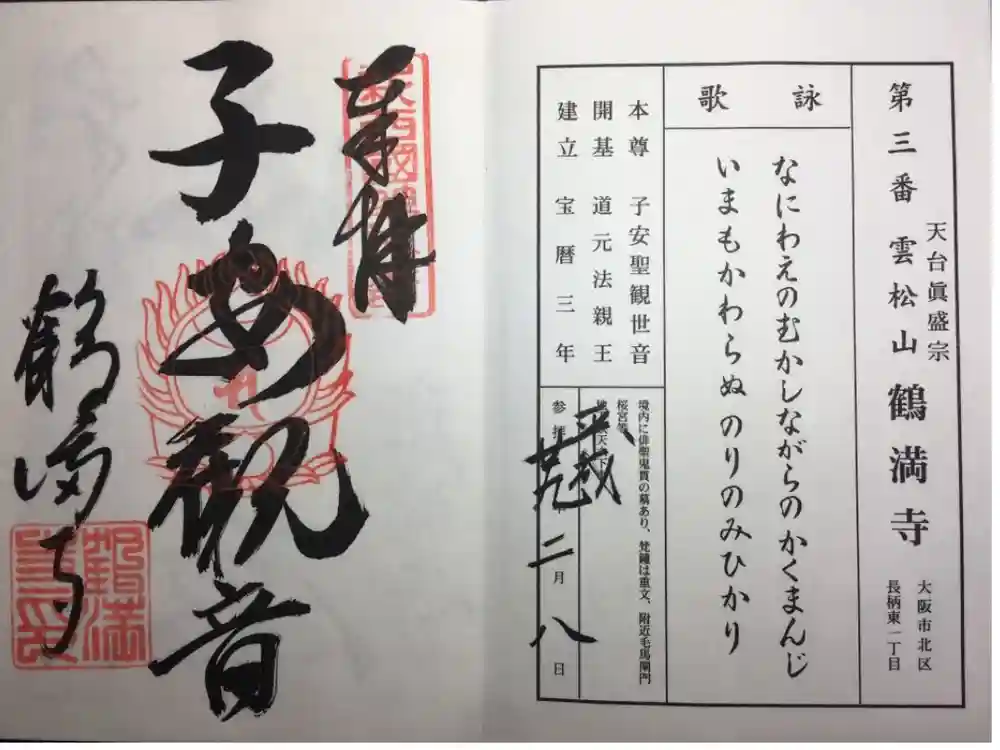 第三番 雲松山 鶴満寺
天台眞盛宗
大阪市北区
長柄東一丁目
詠歌
なにわえのむかしながらのかくまんじ
いまもかわらぬのりのみひかり
本尊 子安聖観世音
開基 道元法親王
建立 宝暦三年
境内に俳聖鬼貫の墓あり、梵鐘は重文、附近毛馬閘門
桜宮等
平成
二月八日
奉拝
子安観音
鶴満寺